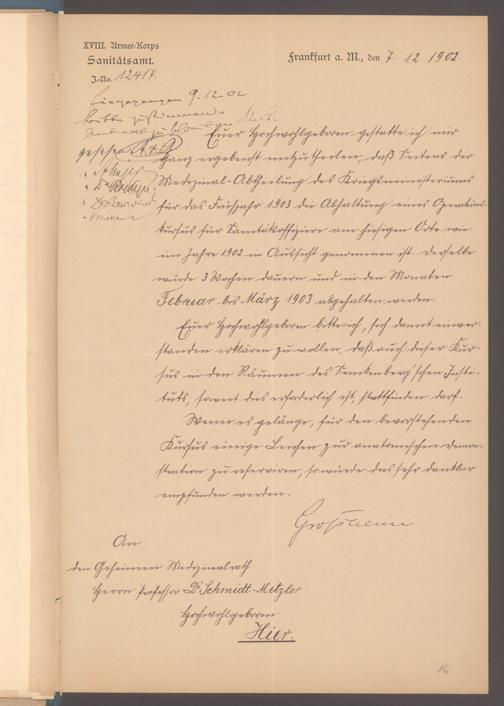 XVIII. Armee-Korps
Sanitätsamt.
J.-No. 12417.
Frankfurt a. M., den 7. 12. 1902.
Eingegangen 9. 12. 02
gesehen
Euer Hochwohlgeboren gestatte ich mir
ganz ergebenst mitzutheilen, daß Seitens der
Medizinal-Abtheilung des Kriegsministeriums
für das Frühjahr 1903 die Abhaltung eines Operations-
kursus für Sanitätsoffiziere am hiesigen Orte wie
im Jahre 1902 in Aussicht genommen ist. Derselbe
würde 3 Wochen dauern und in den Monaten
Februar bis März 1903 abgehalten werden.
Euer Hochwohlgeboren bitte ich, sich damit einver-
standen erklären zu wollen, daß auch dieser Kur-
sus in den Räumen des Senckenberg'schen Insti-
tuts, soweit dies erforderlich ist, stattfinden darf.
Wenn es gelänge, für den bevorstehenden
Kursus einige Leichen zur anatomischen Demon-
stration zu reserviren, so würde dies sehr dankbar
empfunden werden.
Grossheim
An
den Geheimen Medizinalrath
Herrn Professor Dr Schmidt-Metzler
Hochwohlgeboren
Hier.
16